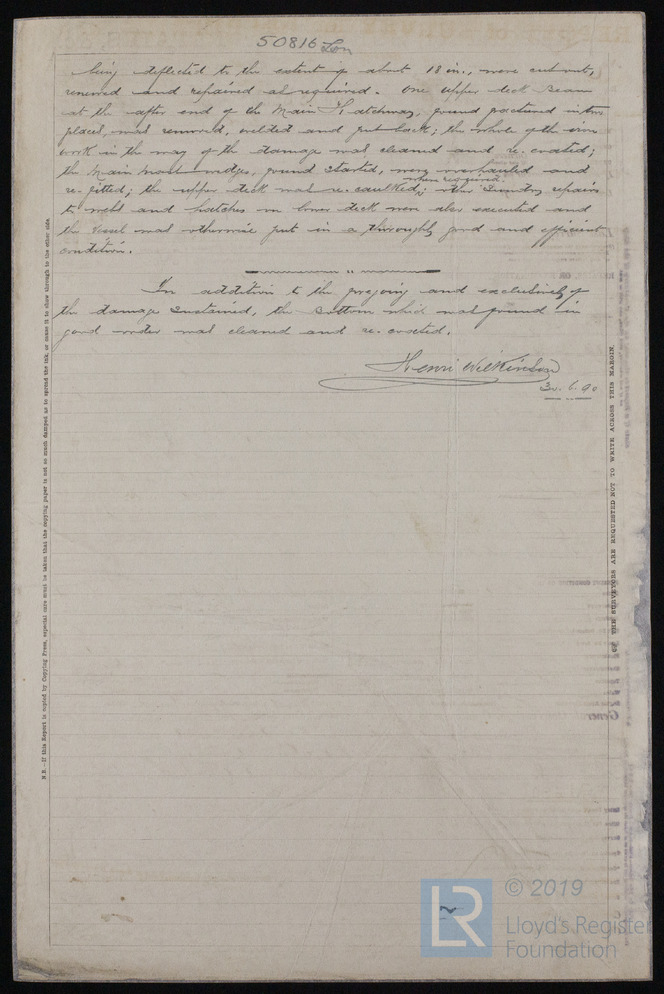 50816 Lon
being deflected to the extent of about 18 in., were cut out,
renewed and repaired as required. One upper deck beam
at the after end of the Main Hatchway, found fractured in two
places, was removed, welded and put back; the whole of the iron
work in the way of the damage was cleaned and re-coated;
the Main Mast wedges, found started, were overhauled and
where required
re-fitted; the upper deck was re-caulked; other Sundry repairs
to and hatches on lower deck were also executed and
the Vessel was otherwise put in a throughly good and efficient
condition.
In addition to the foregoing and exclusively of
the damage Sustained, the Bottom which was found in
good order was cleaned and re-coated.
Henri Wilkinson
30.6.90
N.B.—If this Report is copied by Copying Press, especial care must be taken that the copying paper is not so much damped as to spread the ink, or cause it to show through to the other side.
THE SURVEYORS ARE REQUESTED NOT TO WRITE ACROSS THIS MARGIN.
LR
© 2019
Lloyd's Register
Foundation